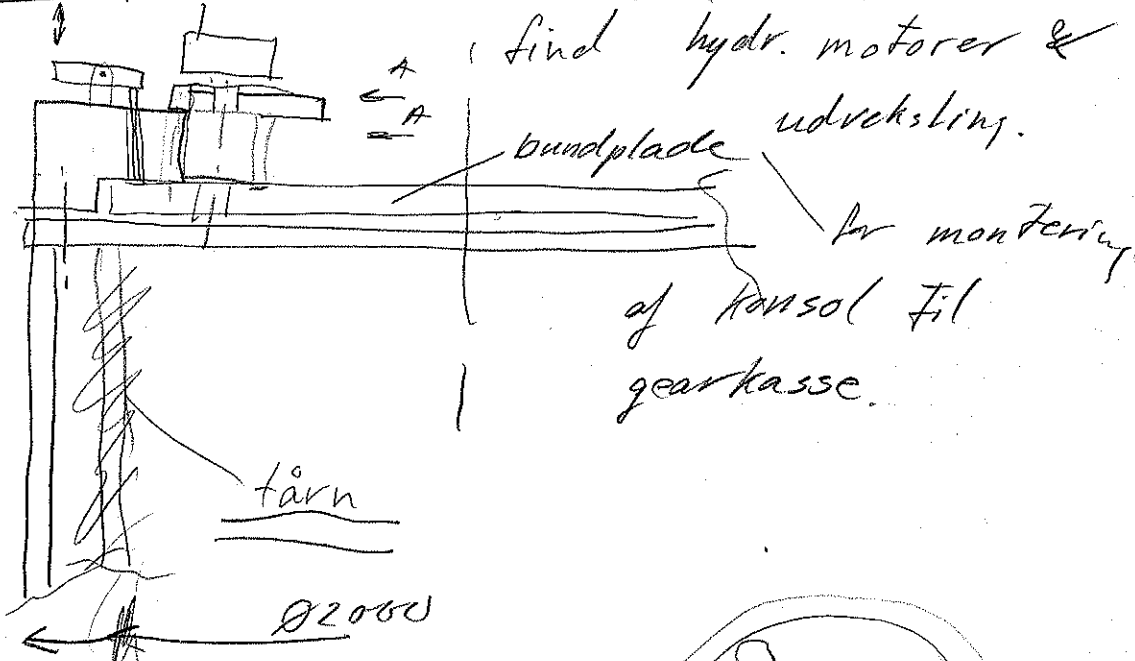 find hydr. motorer &
udveksling.
A
A
bundplade
for montering
af konsol til
gearkasse.
tårn
Ø2000